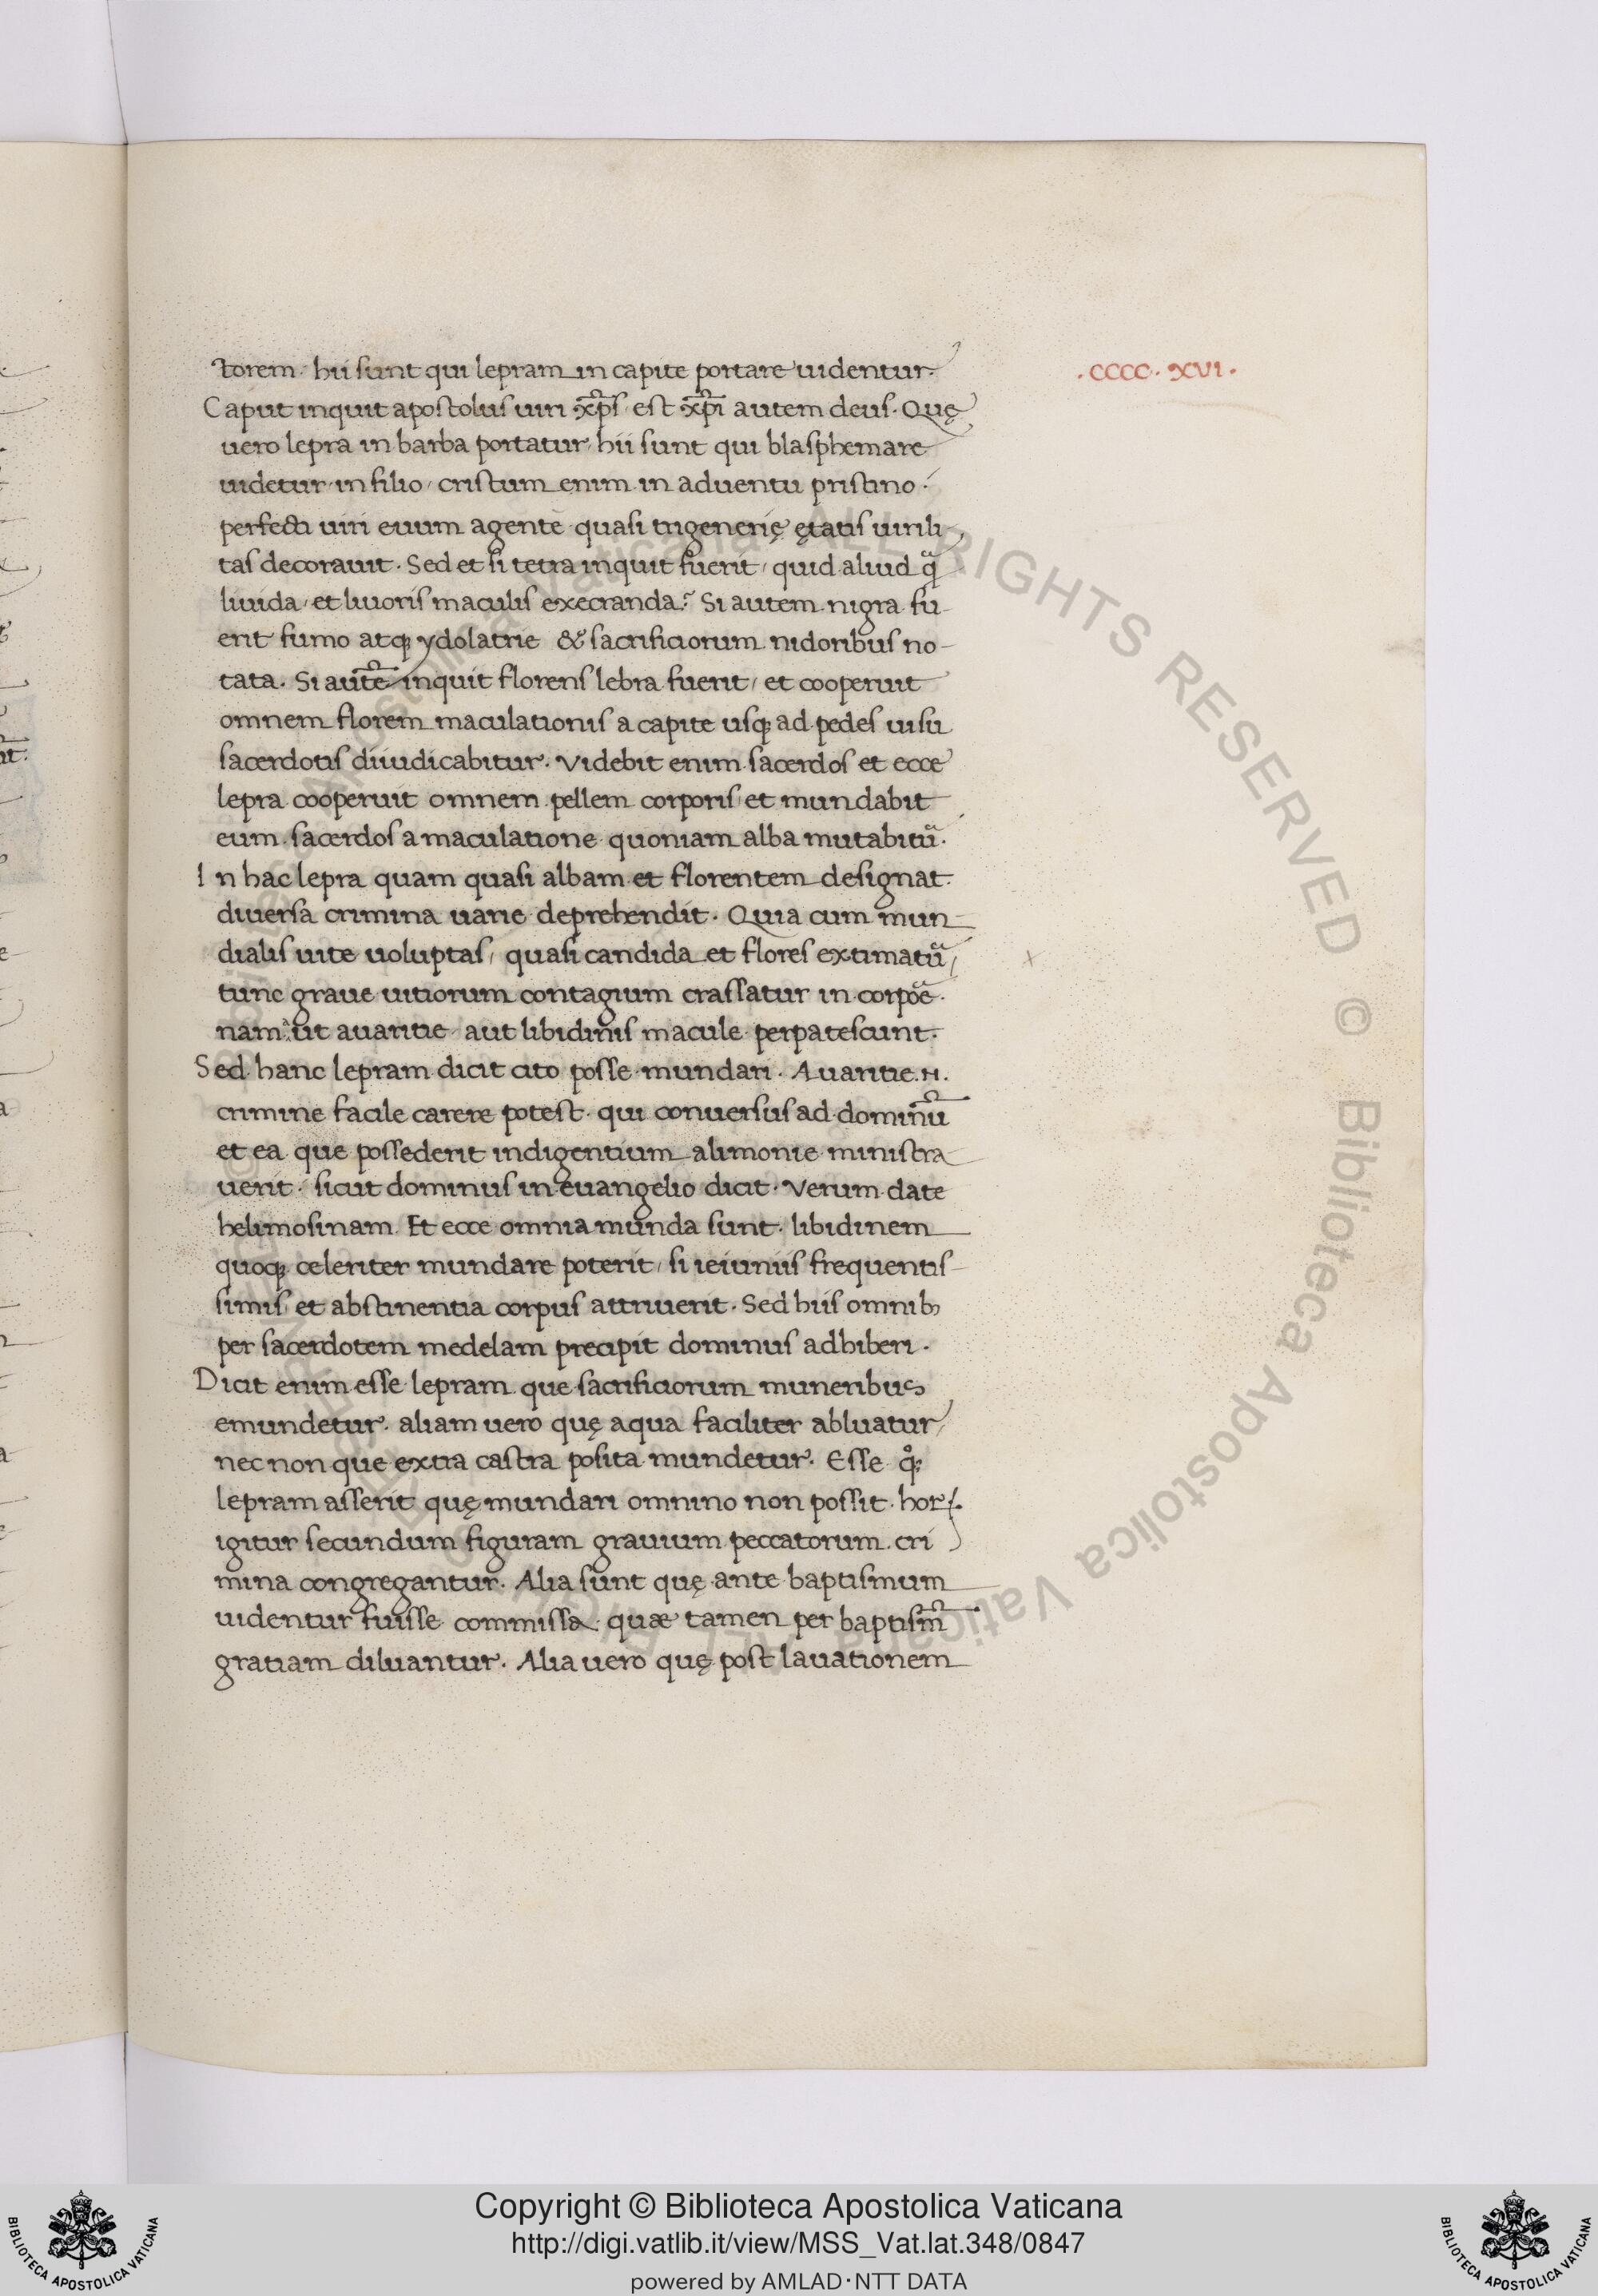 torem. hii sunt qui lepram in capite portare uidentur.
.CCCC.XVI.
Caput inquit apostolus uiri xp̄s est xp̄i autem deus. Quę
uero lepra in barba portatur, hii sunt qui blasphemare
uidetur in filio, cristum enim in aduentu pristino.
perfecti uiri euum agente quasi trigenerię ętatis uirili
tas decorauit. Sed et si tetra inquit fuerit, quid aliud qᷓ
liuida, et liuoris maculis execranda? Si autem nigra fu-
erit fumo atqꝫ ydolatrie & sacrificiorum nidoribus no-
tata. Si autē inquit florens lebra fuerit, et cooperuit
omnem florem maculationis a capite usqꝫ ad pedes uisu
sacerdotis diiudicabitur. Videbit enim sacerdos et ecce
lepra cooperuit omnem pellem corporis, et mundabit
eum sacerdos a maculatione quoniam alba mutabitᷓu.
In hac lepra quam quasi albam et florentem designat.
diuersa crimina uarie deprehendit. Quia cum mun-
dialis uite uoluptas, quasi candida et flores extimatᷓu,
tunc graue uitiorum contagium crassatur in corpoᷓe.
nam ut auaritie aut libidinis macule perpatescunt.
Sed hanc lepram dicit cito posse mundari. Auaritie.H.
crimine facile carere potest. qui conuersus ad dominū
et ea que possederit indigentium alimonie ministra
uerit. sicut dominus in euangelio dicit. Verum date
helimosinam. Et ecce omnia munda sunt. libidinem
quoqꝫ celeriter mundare poterit, si ieiuniis frequentis-
simis, et abstinentia corpus attriuerit. Sed hiis omnibꝫ
per sacerdotem medelam precipit dominus adhiberi.
Dicit enim esse lepram que sacrificiorum muneribus
emundetur. aliam uero quę aqua faciliter abluatur,
nec non que extra castra posita mundetur. Esse qͦꝫ
lepram asserit quę mundari omnino non possit. hoꝝ.
igitur secundum figuram grauium peccatorum cri
mina congregantur. Alia sunt quę ante baptismum
uidentur fuisse commissa. quæ tamen per baptism̄
gratiam diluantur. Alia uero quę post lauationem
Copyright © Biblioteca Apostolica Vaticana
http://digi.vatlib.it/view/MSS_Vat.lat.348/0847
powered by AMLAD·NTT DATA